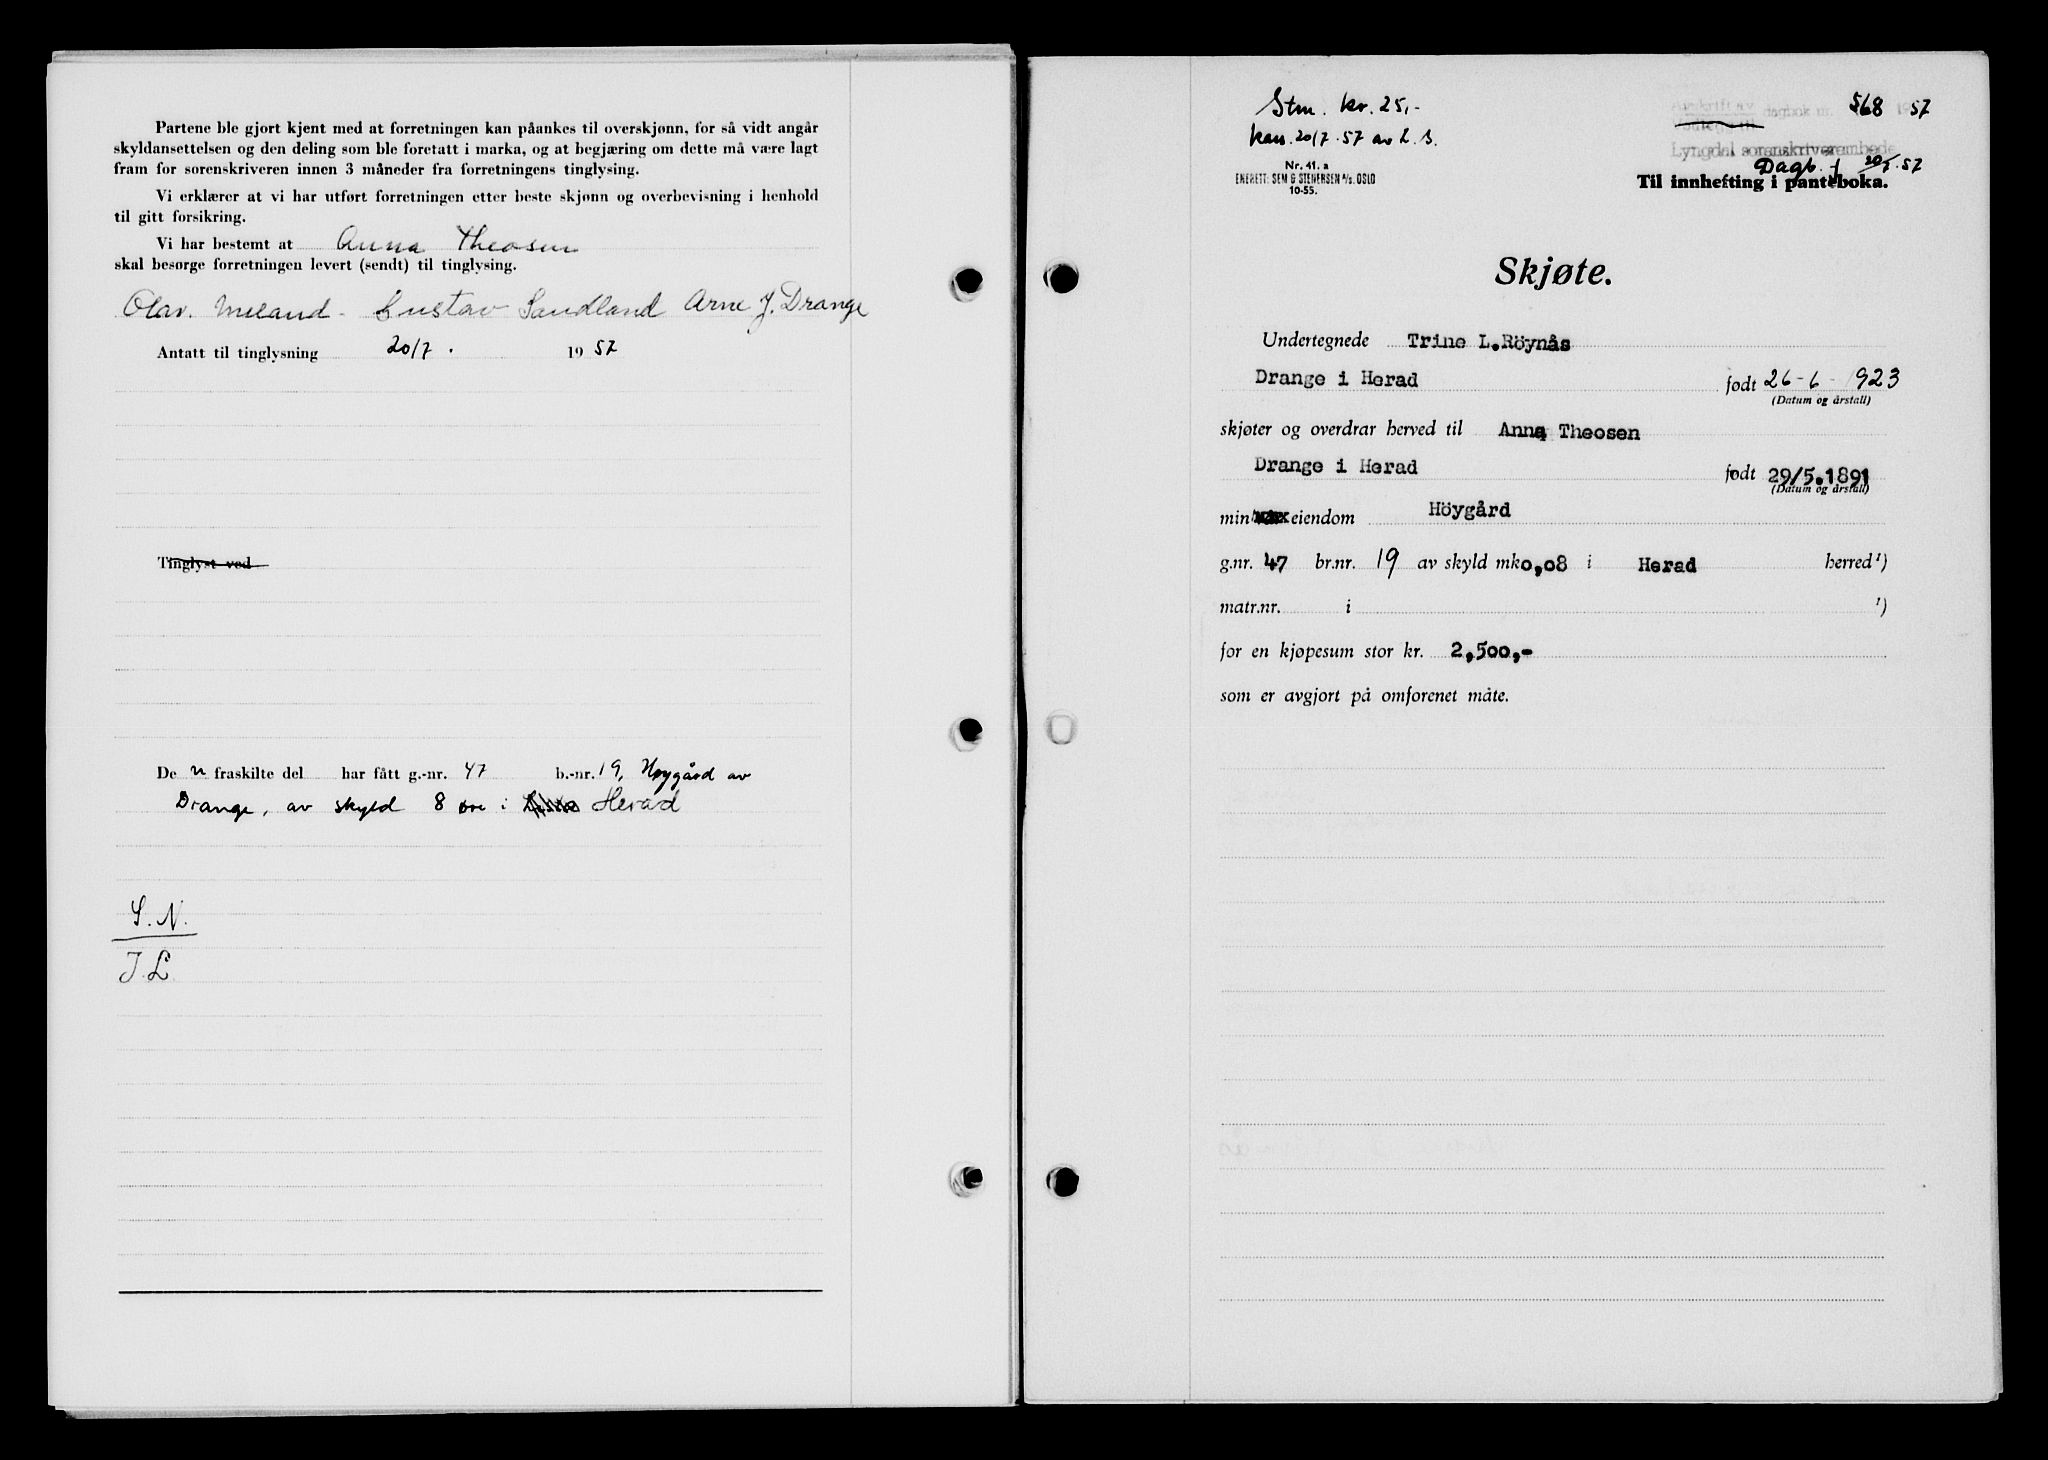 Partene ble gjort kjent med at forretningen kan påankes til overskjønn, for så vidt angår
skyldansettelsen og den deling som ble foretatt i marka, og at begjæring om dette må være lagt
fram for sorenskriveren innen 3 måneder fra forretningens tinglysing.
Vi erklærer at vi har utført forretningen etter beste skjønn og overbevisning i henhold
til gitt forsikring.
Vi har bestemt at Anna Theosen
skal besørge forretningen levert (sendt) til tinglysing.
Olav Meland - Gustav Sandland Arne J. Drange
Antatt til tinglysning 20/7. 19 57
Tinglyst ved
De n fraskilte del har fått g.-nr. 47 b.-nr. 19, Høygård av
Drange, av skyld 8 øre i Herad
S.N.
J.L.
Stm. kr. 25,-
kass. 20/7.57 av L.S.
Nr. 41. a
ENERETT: SEM & STENERSEN A/S. OSLO
10-55.
Avskrift av dagbok nr. 568 1957
Lyngdal sorenskriverembede
Dagb. 20/7.57
Til innhefting i panteboka.
Skjøte.
Undertegnede Trine L.Röynås
Drange i Herad født 26-6-1923
(Datum og årstall)
skjøter og overdrar herved til Anna Theosen
Drange i Herad født 29/5.1891
(Datum og årstall)
min eiendom Höygård
g.nr. 47 br.nr. 19 av skyld mk 0,08 i Herad herred ¹)
matr.nr. i ¹)
for en kjøpesum stor kr. 2,500,-
som er avgjort på omforenet måte.